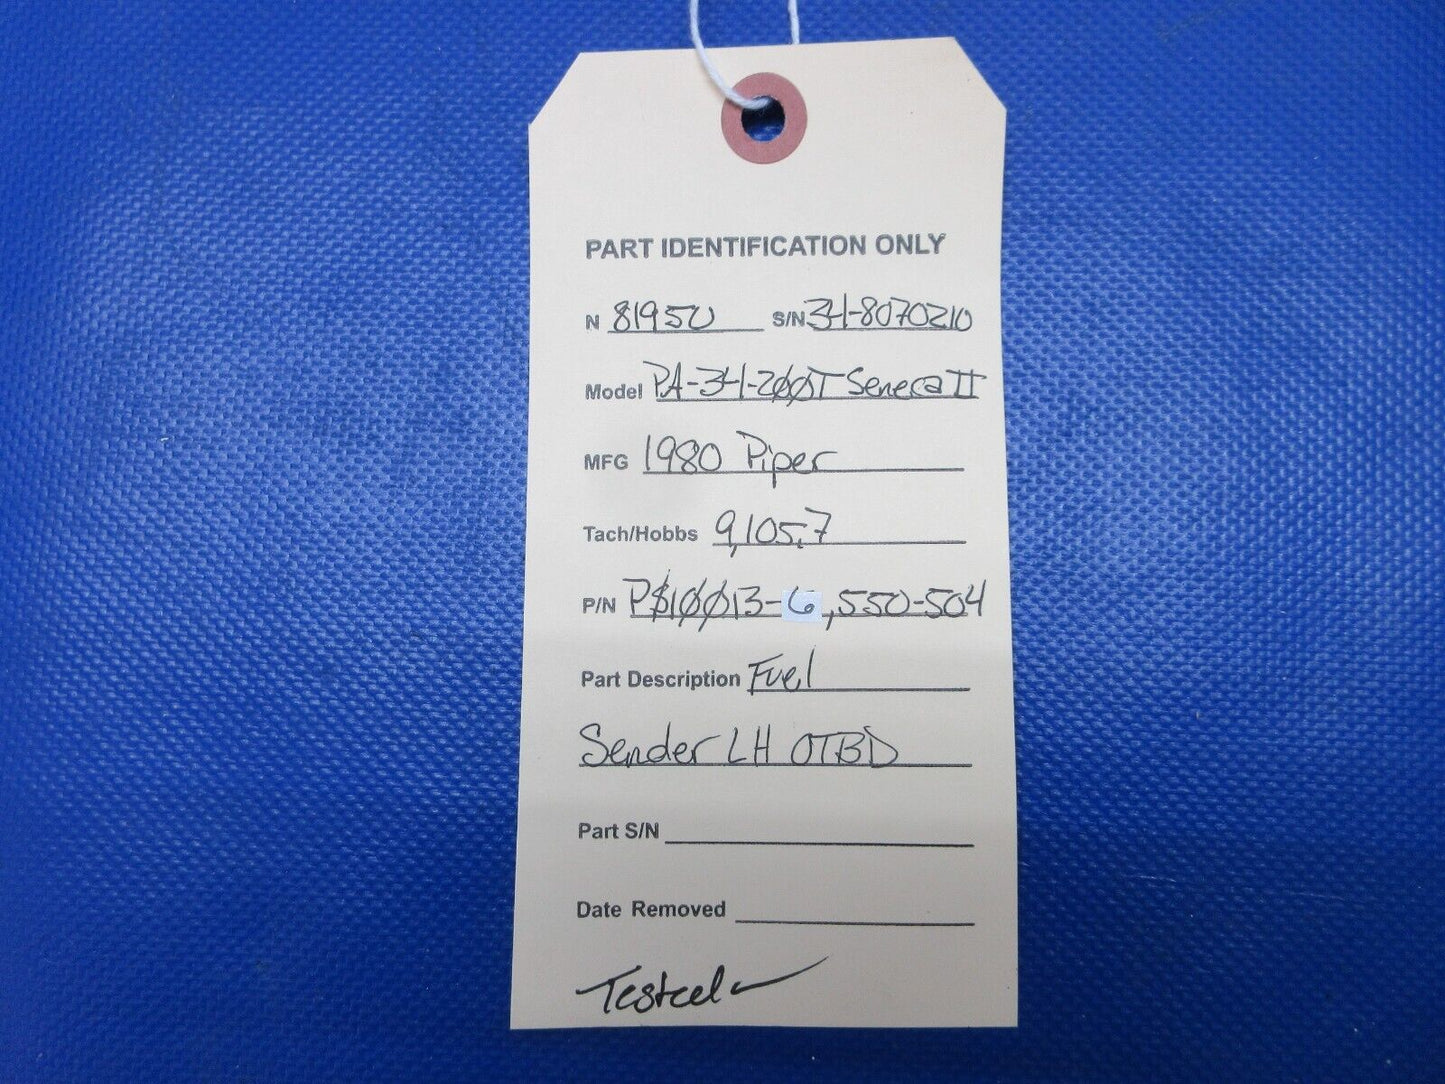 PART IDENTIFICATION ONLY
N 8195U S/N 34-8070210
Model PA-34-200T Seneca II
MFG 1980 Piper
Tach/Hobbs 9,105.7
P/N PS10013-6, 550-504
Part Description Fuel
Sender LH OTBD
Part S/N
Date Removed
Tested ✓